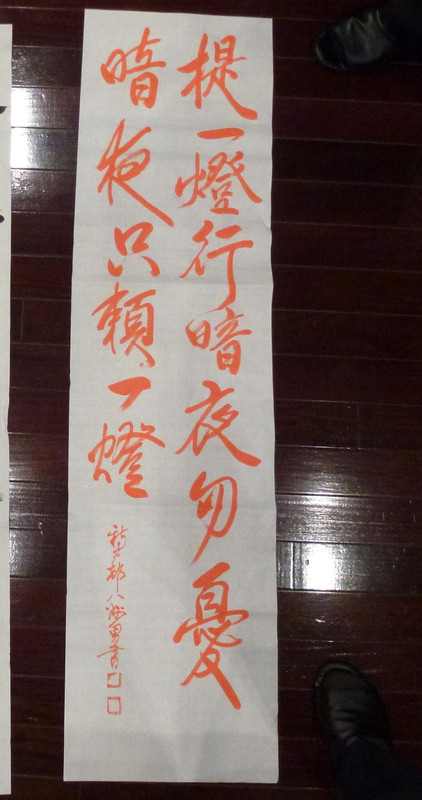 提一燈行暗夜勿憂
暗夜只頼一燈
八洲男書